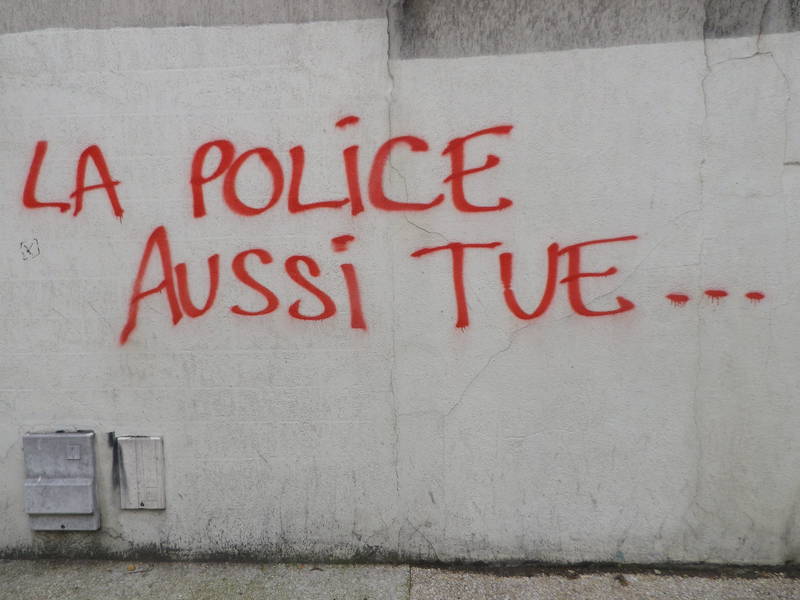 LA POLiCE
AUSSi TUE...